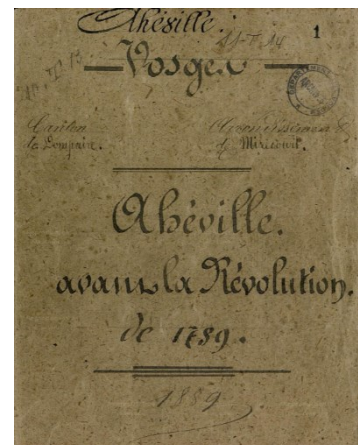 Ahéville.
1
Vosges
Canton
de Dompaire.
Arrondissement
de Mirecourt.
Ahéville.
avant la Révolution.
de 1789.
1889